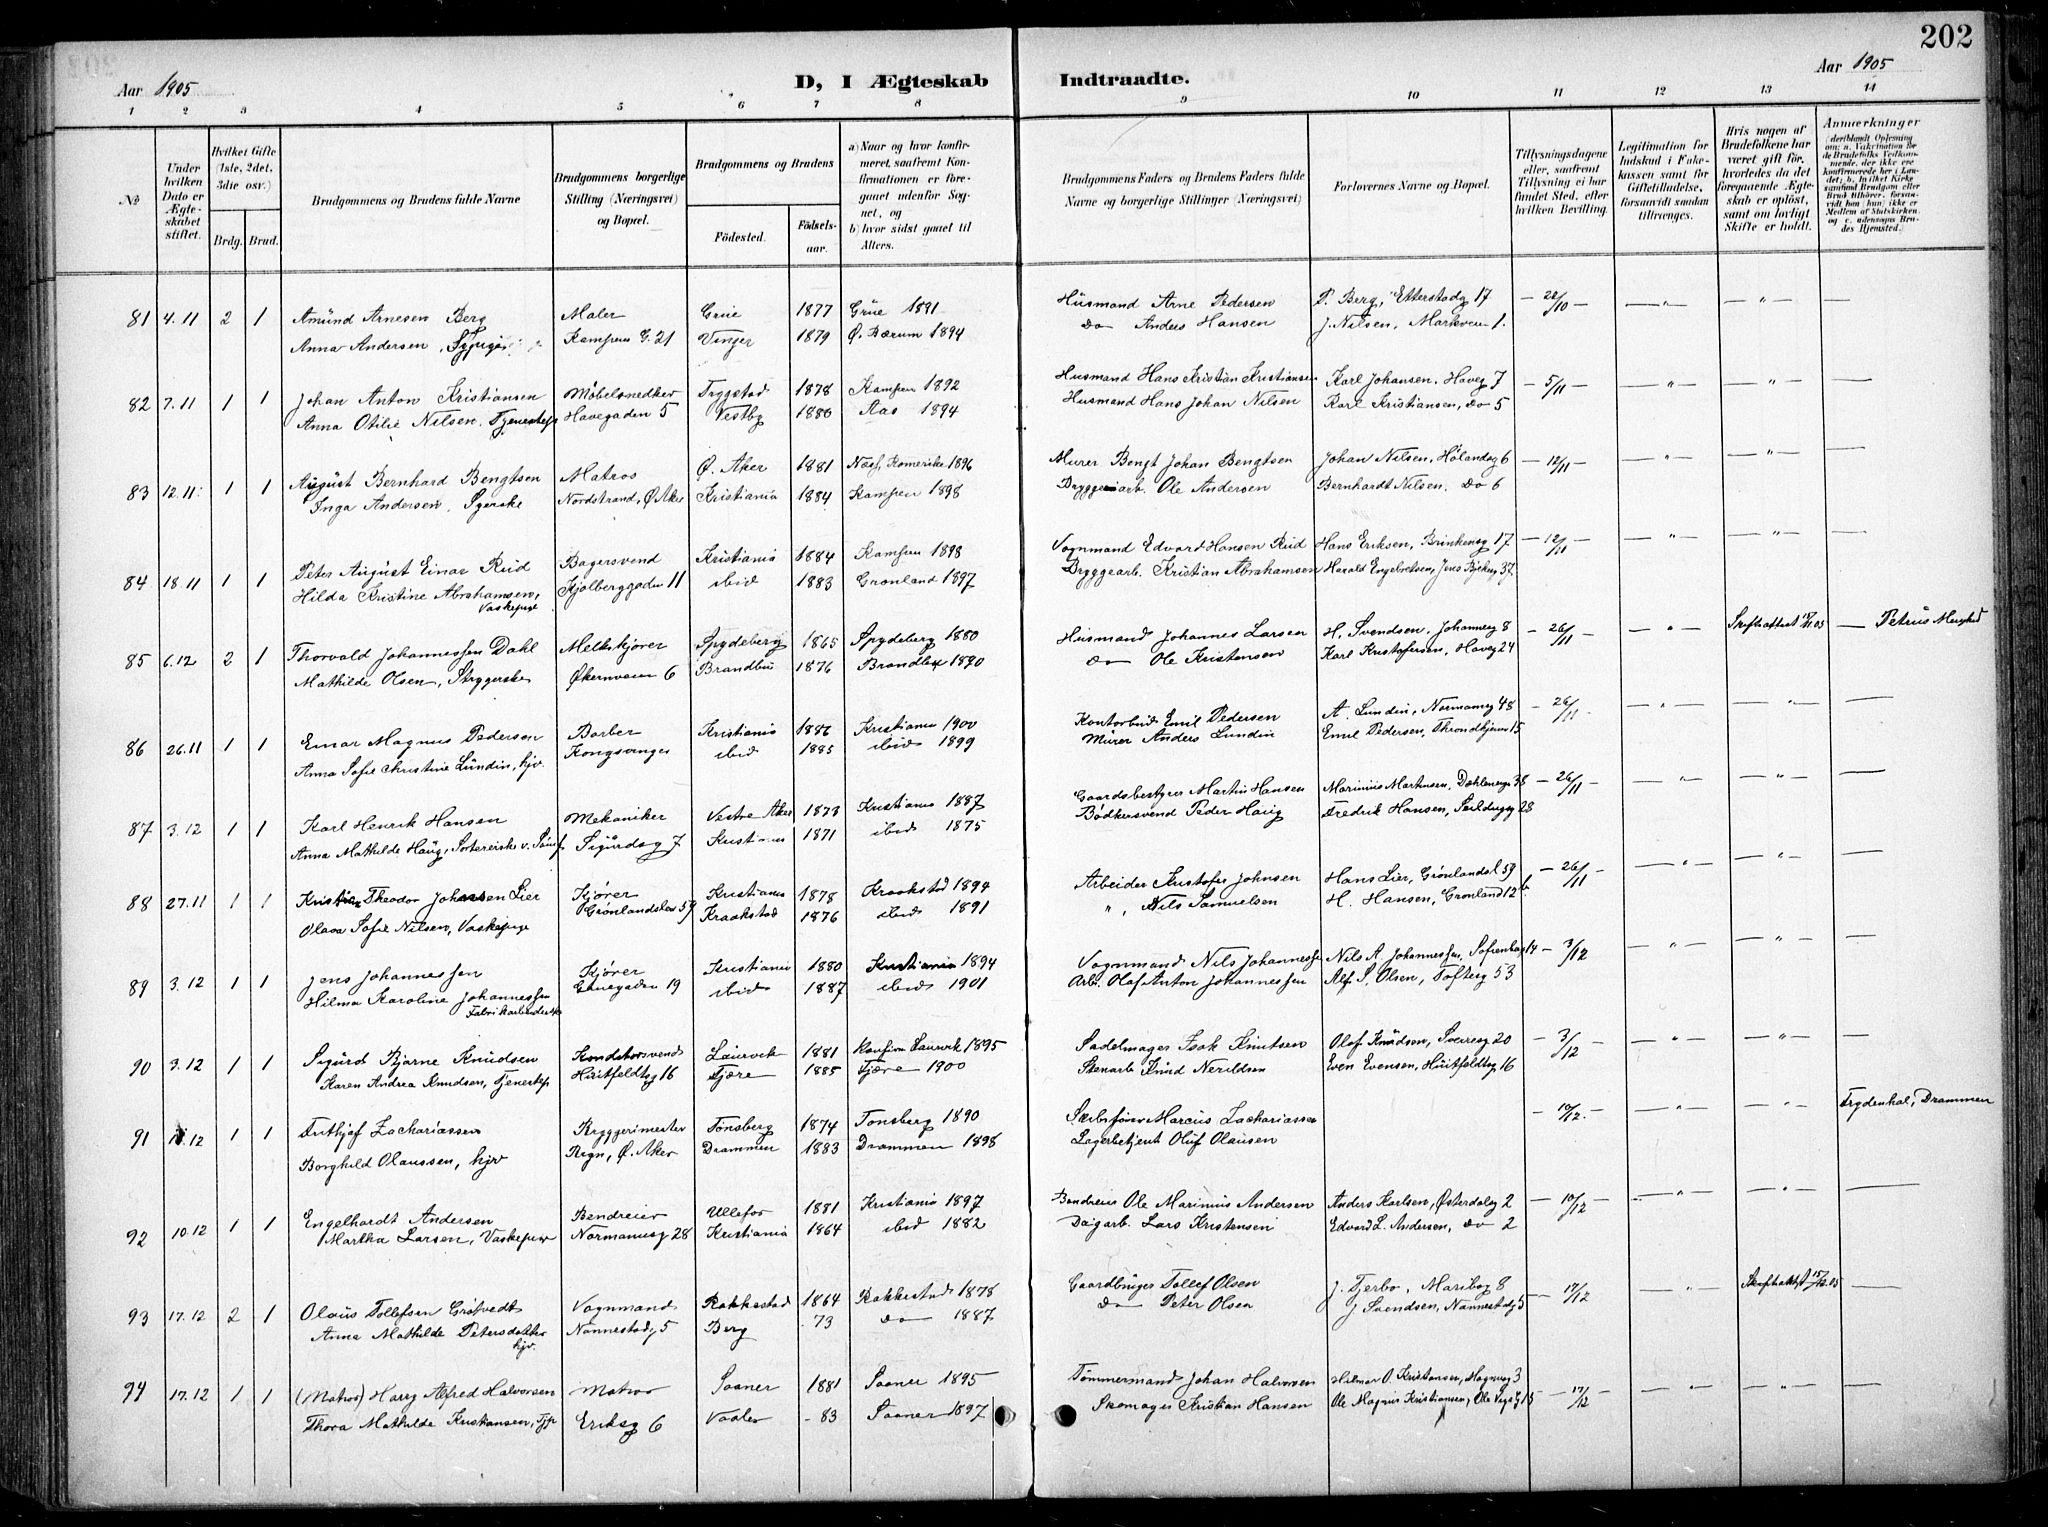 202
Aar 1905
D, I Ægteskab Indtraadte.
Aar 1905
1 2 3 4 5 6 7 8 9 10 11 12 13 14
№
Under hvilken Dato er Ægteskabet stiftet.
Hvilket Gifte (1ste, 2det, 3die osv.)
Brdg. Brud.
Brudgommens og Brudens fulde Navne
Brudgommens borgerlige Stilling (Næringsvei) og Bopæl.
Brudgommens og Brudens
Fødested. Fødselsaar.
a) Naar og hvor konfirmeret, saafremt Konfirmationen er foregaaet udenfor Sognet, og
b) hvor sidst gaaet til Alters.
Brudgommens Faders og Brudens Faders fulde Navne og borgerlige Stillinger (Næringsvei)
Forlovernes Navne og Bopæl.
Tillysningsdagene eller, saafremt Tillysning ei har fundet Sted, efter hvilken Bevilling.
Legitimation for Indskud i Enkekassen samt for Giftetilladelse, forsaavidt saadan tiltrænges.
Hvis nogen af Brudefolkene har været gift før, hvorledes da det foregaaende Ægteskab er opløst, samt om lovligt Skifte er holdt.
Anmærkninger
(deriblandt Oplysning om: a. Vakcination for de Brudefolks Vedkommende, der ikke ere konfirmerede her i Landet; b. hvilket Kirkesamfund Brudgom eller Brud tilhører, forsaavidt han (hun) ikke er Medlem af Statskirken, og c. udensogns Brudes Hjemsted.)
81 4.11 2 1 Amünd Arnesen Berg Maler Grue 1877 Grüe 1891 Hüsmand Arne Pedersen P. Berg, Etterstadg 17 — 22/10 — — " — — " — —
Anna Andersen, Kampens G. 21 Vinger 1879 Ø. Bærum 1894 Do Anders Hansen J. Nilsen, Markveien 1.
82 7.11 1 1 Johan Anton Kristiansen Møbelsnedker Trygstad 1878 Kampen 1892 Husmand Hans Kristian Kristiansen Karl Johansen, Haveg 7 — 5/11 — — " — — " — —
Anna Otilie Nilsen, Tjenestep Havegaden 5 Vestby 1880 Aas 1894 Husmand Hans Johan Nilsen Karl Kristiansen, Do 5
83 12.11 1 1 August Bernhard Bengtsen Matros Ø. Aker 1881 Næs, Romerike 1896 Murer Bengt Johan Bengtsen Johan Nilsen, Hølandsg 6 — 12/11 — — " — — " — —
Inga Andersen, Syerske Nordstrand, Ø. Aker Kristiania 1884 Kampen 1898 Bryggeriarb. Ole Andersen Bernhardt Nilsen, Do 6
84 18.11 1 1 Peter August Einar Rud Bagersvend Kristiania 1884 Kampen 1898 Vognmand Edvard Hansen Rud Hans Eriksen, Brinkensg 17 — 12/11 — — " — — " — —
Hilda Kristine Abrahamsen, Kjølberggaden 11 ibid 1883 Grønland 1897 Bryggearb. Kristian Abrahamsen Harald Engebretsen, Jens Bjelkesg 37.
Vaskepige
85 6.12 2 1 Thorvald Johannessen Dahl Melkekjører Spydeberg 1865 Spydeberg 1880 Husmand Johannes Larsen H. Svendsen, Johannesg 8 — 26/11 — — " — Skifteattest — Petrus Menighed
Mathilde Olsen, Strygerske Økernveien 6 Brandbu 1876 Brandbu 1890 Do Ole Kristensen Karl Kristofersen, Haveg 24
86 26.11 1 1 Einar Magnus Pedersen Barber Kristiania 1886 Kristiania 1900 Kontorbud Emil Pedersen A. Lundin, Normannsg 48 — 26/11 — — " — — " — —
Anna Sofie Christine Lündin, hjv. Kongsvinger ibid 1885 ibid 1899 Mürer Anders Lundin Emil Pedersen, Throndhjemsv 15
87 3.12 1 1 Karl Henrik Hansen Mekaniker Vestre Aker 1873 Kristiania 1887 Gaardsbestyrer Martin Hansen Marinius Markusen, Dælenengg 38 — 26/11 — — " — — " — —
Anna Mathilde Haug, Sigürdsg 7 Kristiania 1871 ibid 1875 Bødkersvend Peder Haüg Fredrik Hansen, 28
88 27.11 1 1 Kristian Theodor Johansen Lier Kjører Kristiania 1878 Kraakstad 1894 Arbeider Kristofer Johnsen Hans Lier, Grønlandsl 59 — 26/11 — — " — — " — —
Olava Sofie Nilsen, Vaskepige Grønlandsler 59 Kraakstad 1876 ibid 1891 " , Nils Samuelsen H. Hansen, Grønland 12b
89 3.12 1 1 Jens Johannessen Kjører Kristiania 1880 Kristiania 1894 Vognmand Nils Johannessen Nils A. Johannessen, Sofienbergg 14 — 3/12 — " — — " — —
Hilma Karoline Johannessen 19 ibid 1887 ibid 1901 Arb. Olaf Anton Johannessen Alf S. Olsen, Tofteg 53
Fabrikarbeiderske
90 3.12 1 1 Sigurd Bjarne Knudsen Laurvik 1881 Laurvik 1895 Sadelmager Isak Knutsen Olaf Knüdsen, Sverresg 20 — 3/12 — " — — " — —
Karen Andrea Knudsen, Tjenestep Hüitfeldtsg 16 Fjære 1885 Fjære 1900 Stenarb Knüd Nerildsen Even Evensen, Hüitfeldtsg 16
91 12 1 1 Frithjof Zachariassen Bryggerimester Tønsberg 1874 Tønsberg 1890 Skibsfører Marcus Zachariassen — 10/12. — — " — — " — Frydenhal, Drammen
Borghild Olaussen, hjv Ryen, Ø. Aker Drammen 1883 Drammen 1898 Lagerbetjent Oluf Olaüsen
92 10.12 1 1 Engelhardt Andersen Bendreier Ullefos 1881 Kristiania 1897 Bendreier Ole Marinius Andersen Anders Karlsen, Østerdalsg 2 — 10/12 — — " — — " — —
Martha Larsen, Vaskepige Normannsg 28 Kristiania 1864 ibid 1882 Dagarb. Lars Kristensen Edvard L. Andersen, do 2
93 17.12 2 1 Olaüs Tollefsen Grøtvedt Vognmand Rakkestad 1864 Rakkestad 1878 Gaardbruger Tollef Olsen J. Tjerbo, Maribog 8 — 17/12 — " — Skifteattest 15/12.05 —
Anna Mathilde Petersdatter Nannestadg. 5 Berg 73 Do 1887 Do Peter Olsen J Svendsen, Nannestadg 5
hjv.
94 17.12 1 1 (Matros) Harry Alfred Halvorsen Matros Saaner 1881 Saaner 1895 Tømmermand Johan Halvorsen Hilmar O. Kristiansen, 3 — 17/12 — " — — " — —
Thora Mathilde Kristiansen, Tjp Eriksg 6 Vaaler - 83 Saaner 1897 Skomager Kristian Hansen Ole Magnus Kristiansen, Ole Vigsg 15